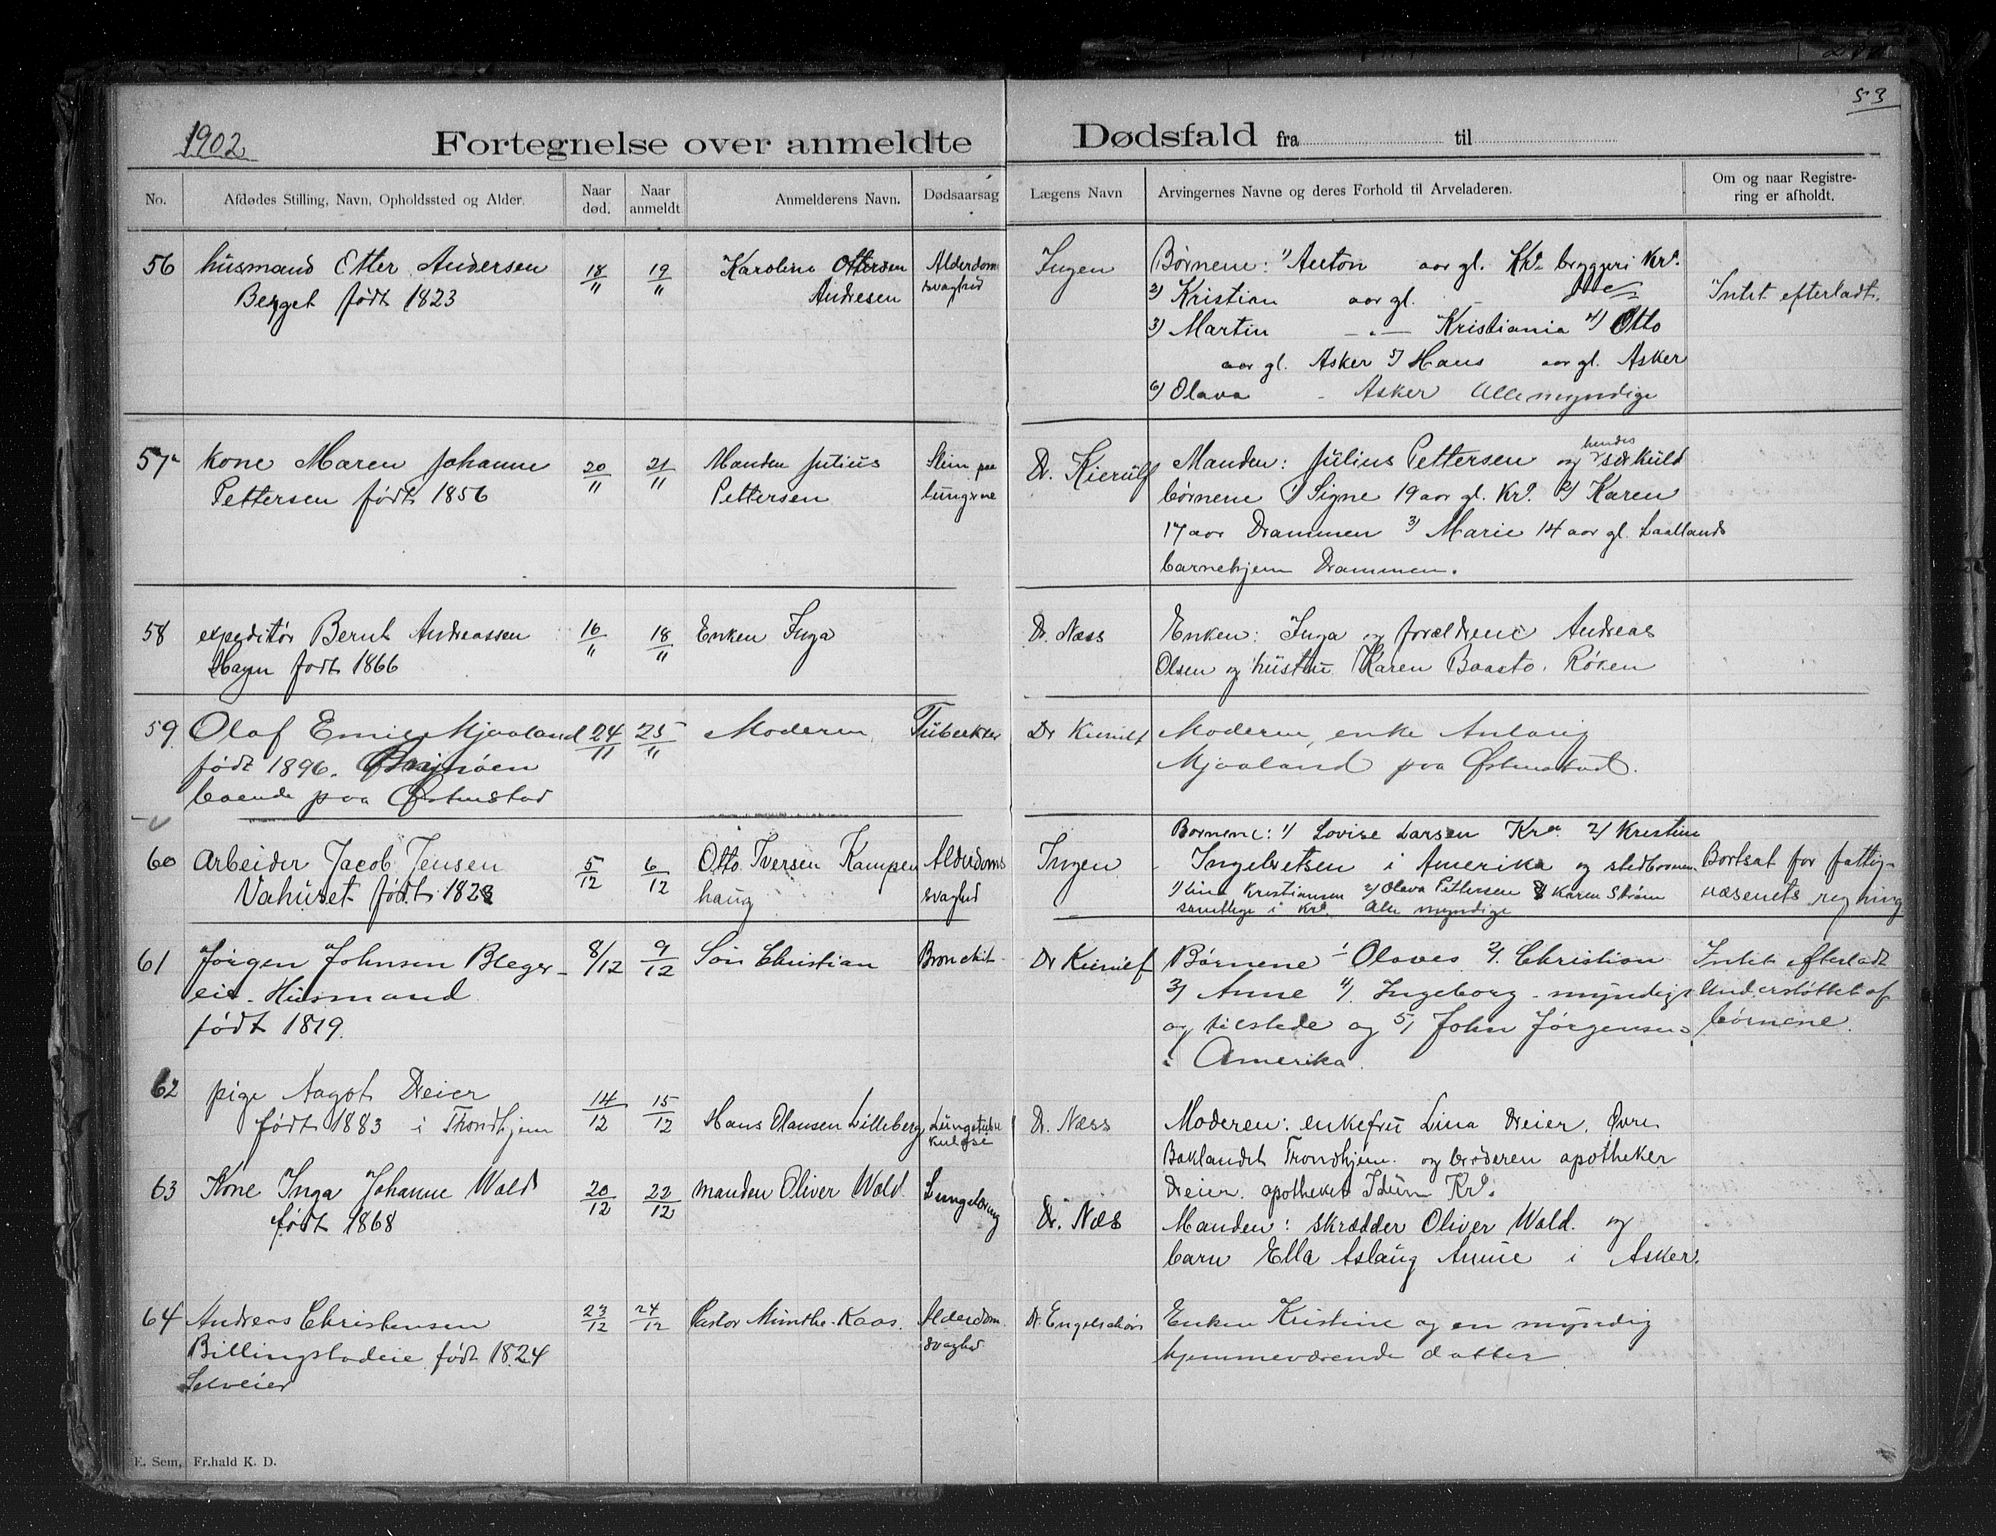 53
1902
Fortegnelse over anmeldte Dødsfald fra til
No. Afdødes Stilling, Navn, Opholdssted og Alder. Naar død. Naar anmeldt Anmelderens Navn. Dødsaarsag Lægens Navn Arvingernes Navne og deres Forhold til Arveladeren. Om og naar Registrering er afholdt.
56 husmand Etter Andersen
Berget født 1823
18/11
19/11
Karoline Ottersen
Andresen
Alderdom
svaghed
Ingen
Børnene: 1) Anton aar gl. Kra bryggeri Kra.
2) Kristian aar gl.
3) Martin — " — Kristiania 4) Otto
aar gl. Asker 5) Hans aar gl. Asker
6) Olava - Asker Alle myndige
Intet efterladt.
57 kone Maren Johanne
Pettersen født 1856
20/11
21/11
Manden Julius
Pettersen
Slim paa
lungerne
Dr. Kierulf
Manden: Julius Pettersen og hendes særkuld
børnene 1) Signe 19 aar gl. Kra. 2) Karen
17 aar Drammen 3) Marie 14 aar gl. Laallands
barnehjem Drammen.
58 expeditør Bernt Andreassen
Hagen født 1866
16/11
18/11
Enken Inga
Dr. Næss
Enken: Inga og forældrene Andreas
Olsen og hustru Karen Baasto. Røken
59. Olaf Emil Mjaaland
født 1896.
boende paa Østenstad
24/11
25/11
Moderen
Tuberkler
Dr Kierulf
Moderen, enke Anlaug
Mjaaland paa Østenstad.
60 Arbeider Jacob Jensen
Vahuset født 1828
5/12
6/12
Otto Iversen Kampen
haug
Alderdoms
svaghed
Ingen
Børnene: 1) Lovise Larsen Kra 2) Kristine
Ingebretsen i Amerika og stedbørnene
1) Lina Kristiansen 2) Olava Pettersen 3) Karen Strøm
samtlige i Kra. Alle myndige
Bortsat for fattig-
væsenets regning
61 Jørgen Johnsen Bleger-
eie. Husmand
født 1819.
8/12
9/12
Søn Christian
Bronchit
Dr Kierulf
Børnene 1 Olaves 2/ Christian
3/ Anne 4/ Ingeborg - myndige
og tilstede og 5/ John Jørgensen
i Amerika.
Intet efterladt
Understøttet af
børnene.
62 pige Aagot Dreier
født 1883 i Trondhjem
14/12
15/12
Hans Olausen Lilleberg
Lungetuber
kulose
Dr. Næss
Moderen: enkefru Lina Dreier. Øvre
Baklandet Trondhjem. og broderen apotheker
Dreier. apotheket Idun Kra.
63 Kone Inga Johanne Wald
født 1868
20/12
22/12
manden Oliver Wald
Dr. Næs
Manden: skrædder Oliver Wald. og
barn Ella Aslaug Anne i Asker.
64 Andreas Christensen
Billingstadeie født 1824
Selveier
23/12
24/12
Pastor Munthe-Kaas.
Alderdom
svaghed
Dr. Engelschiøn
Enken Kristine og en myndig
hjemmeværende datter.
E. Sem, Fr.hald K. D.